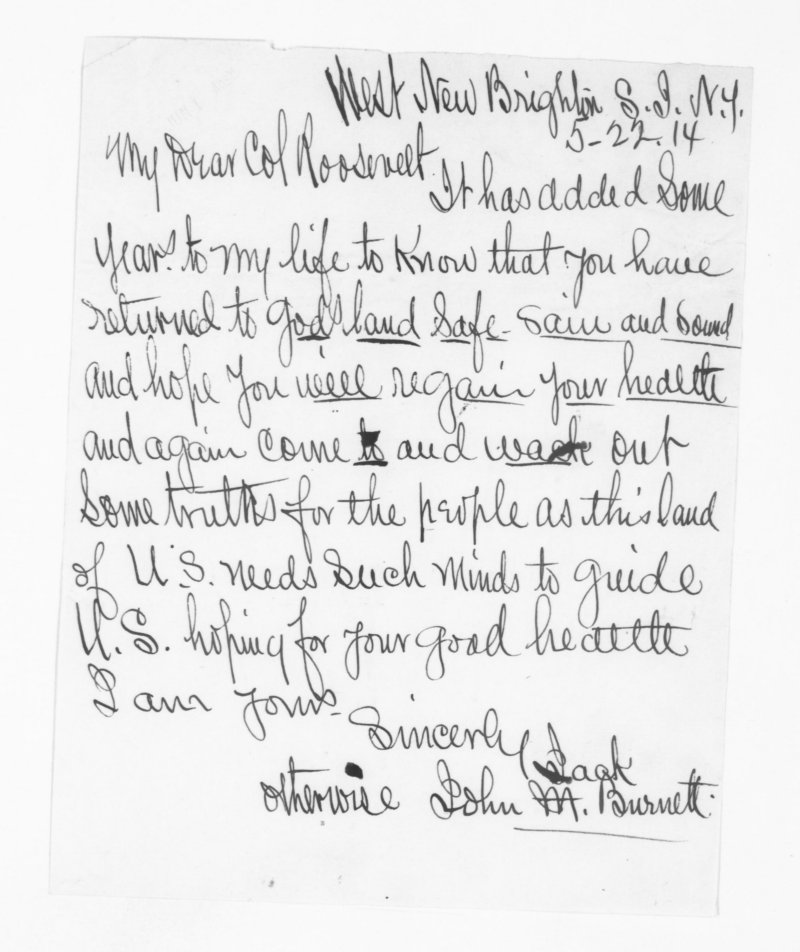 West New Brighton S. I. N.Y.
5-22.14
My Dear Col Roosevelt
It has added Some
Years to my life to Know that you have
returned to God's land Safe - Sain and Sound
and hope you will regain your health
and again come to and out
Some truths for the people as this land
of U.S. needs Such Minds to guide
U.S. hoping for your good health
I am yours
Sincerly Jack
otherwise John M. Burnett.